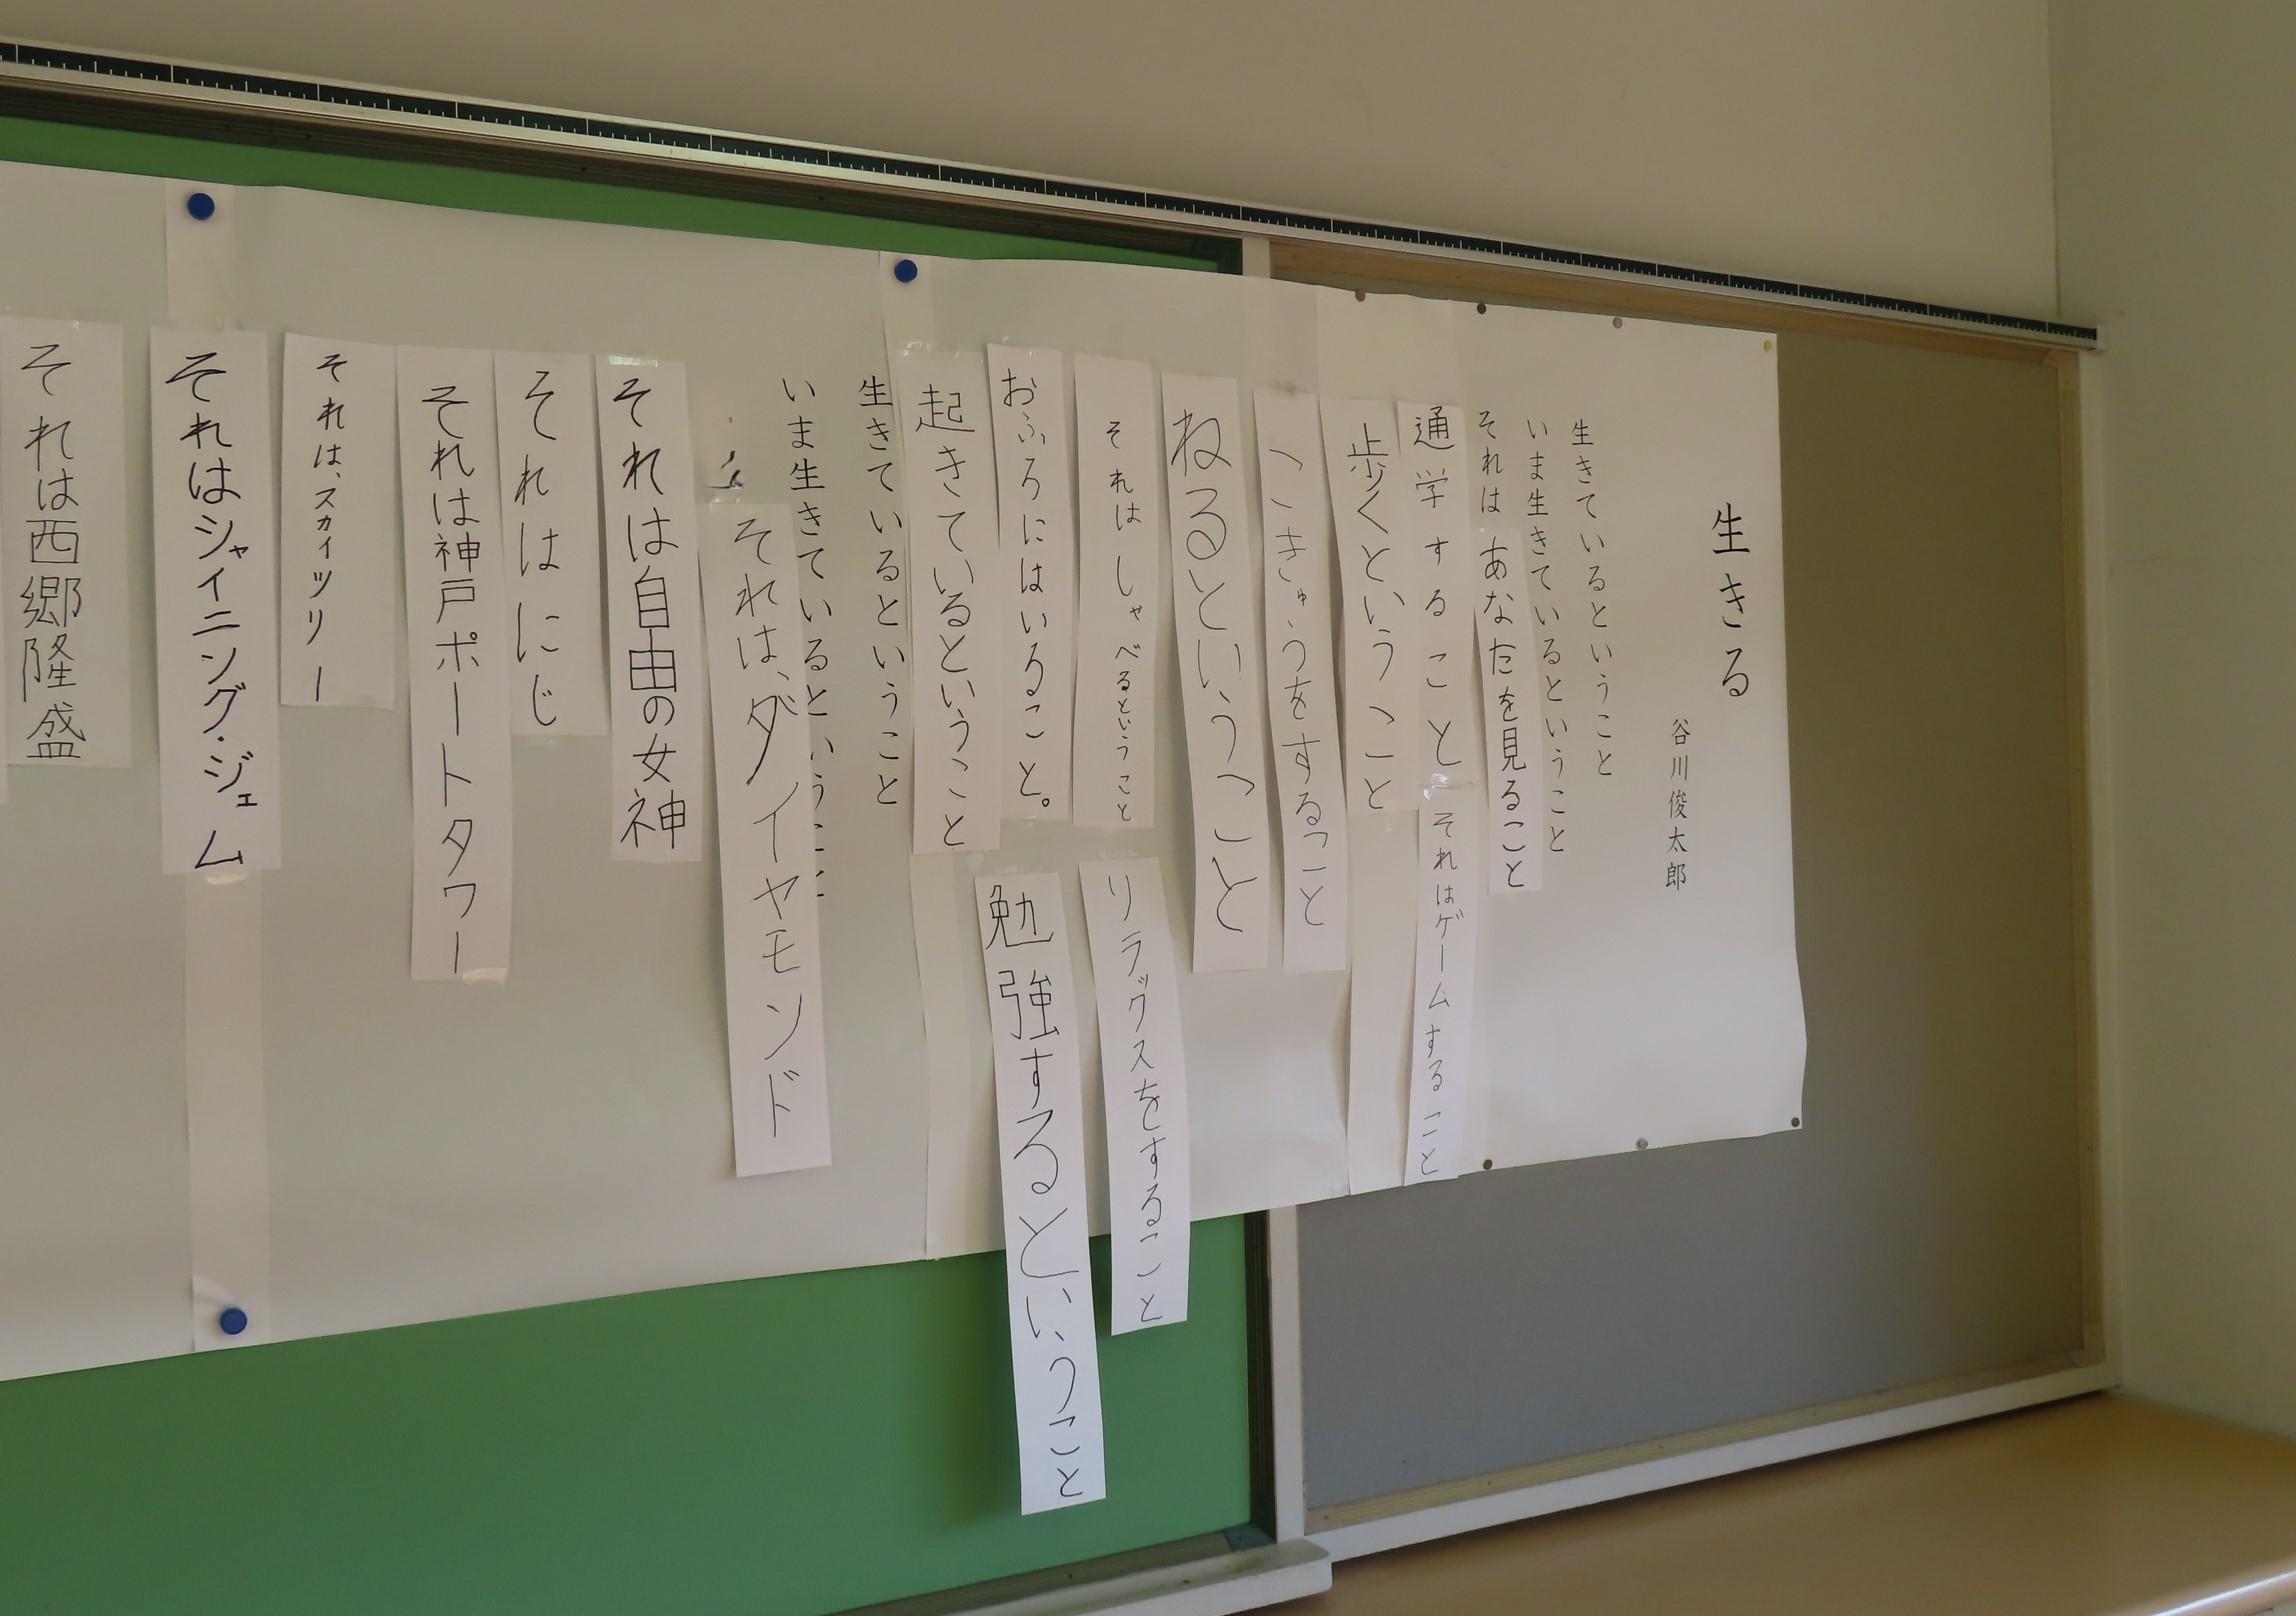 生きる
谷川俊太郎
生きているということ
いま生きているということ
それは
あなたを見ること
通学すること
それはゲームすること
歩くということ
こきゅうをすること
ねるということ
それはしゃべるということ
リラックスをすること
おふろにはいること。
勉強するということ
起きているということ
生きているということ
いま生きているということ
それは、ダイヤモンド
それは自由の女神
それはにじ
それは神戸ポートタワー
それは、スカイツリー
それはシャイニング・ジェム
それは西郷隆盛